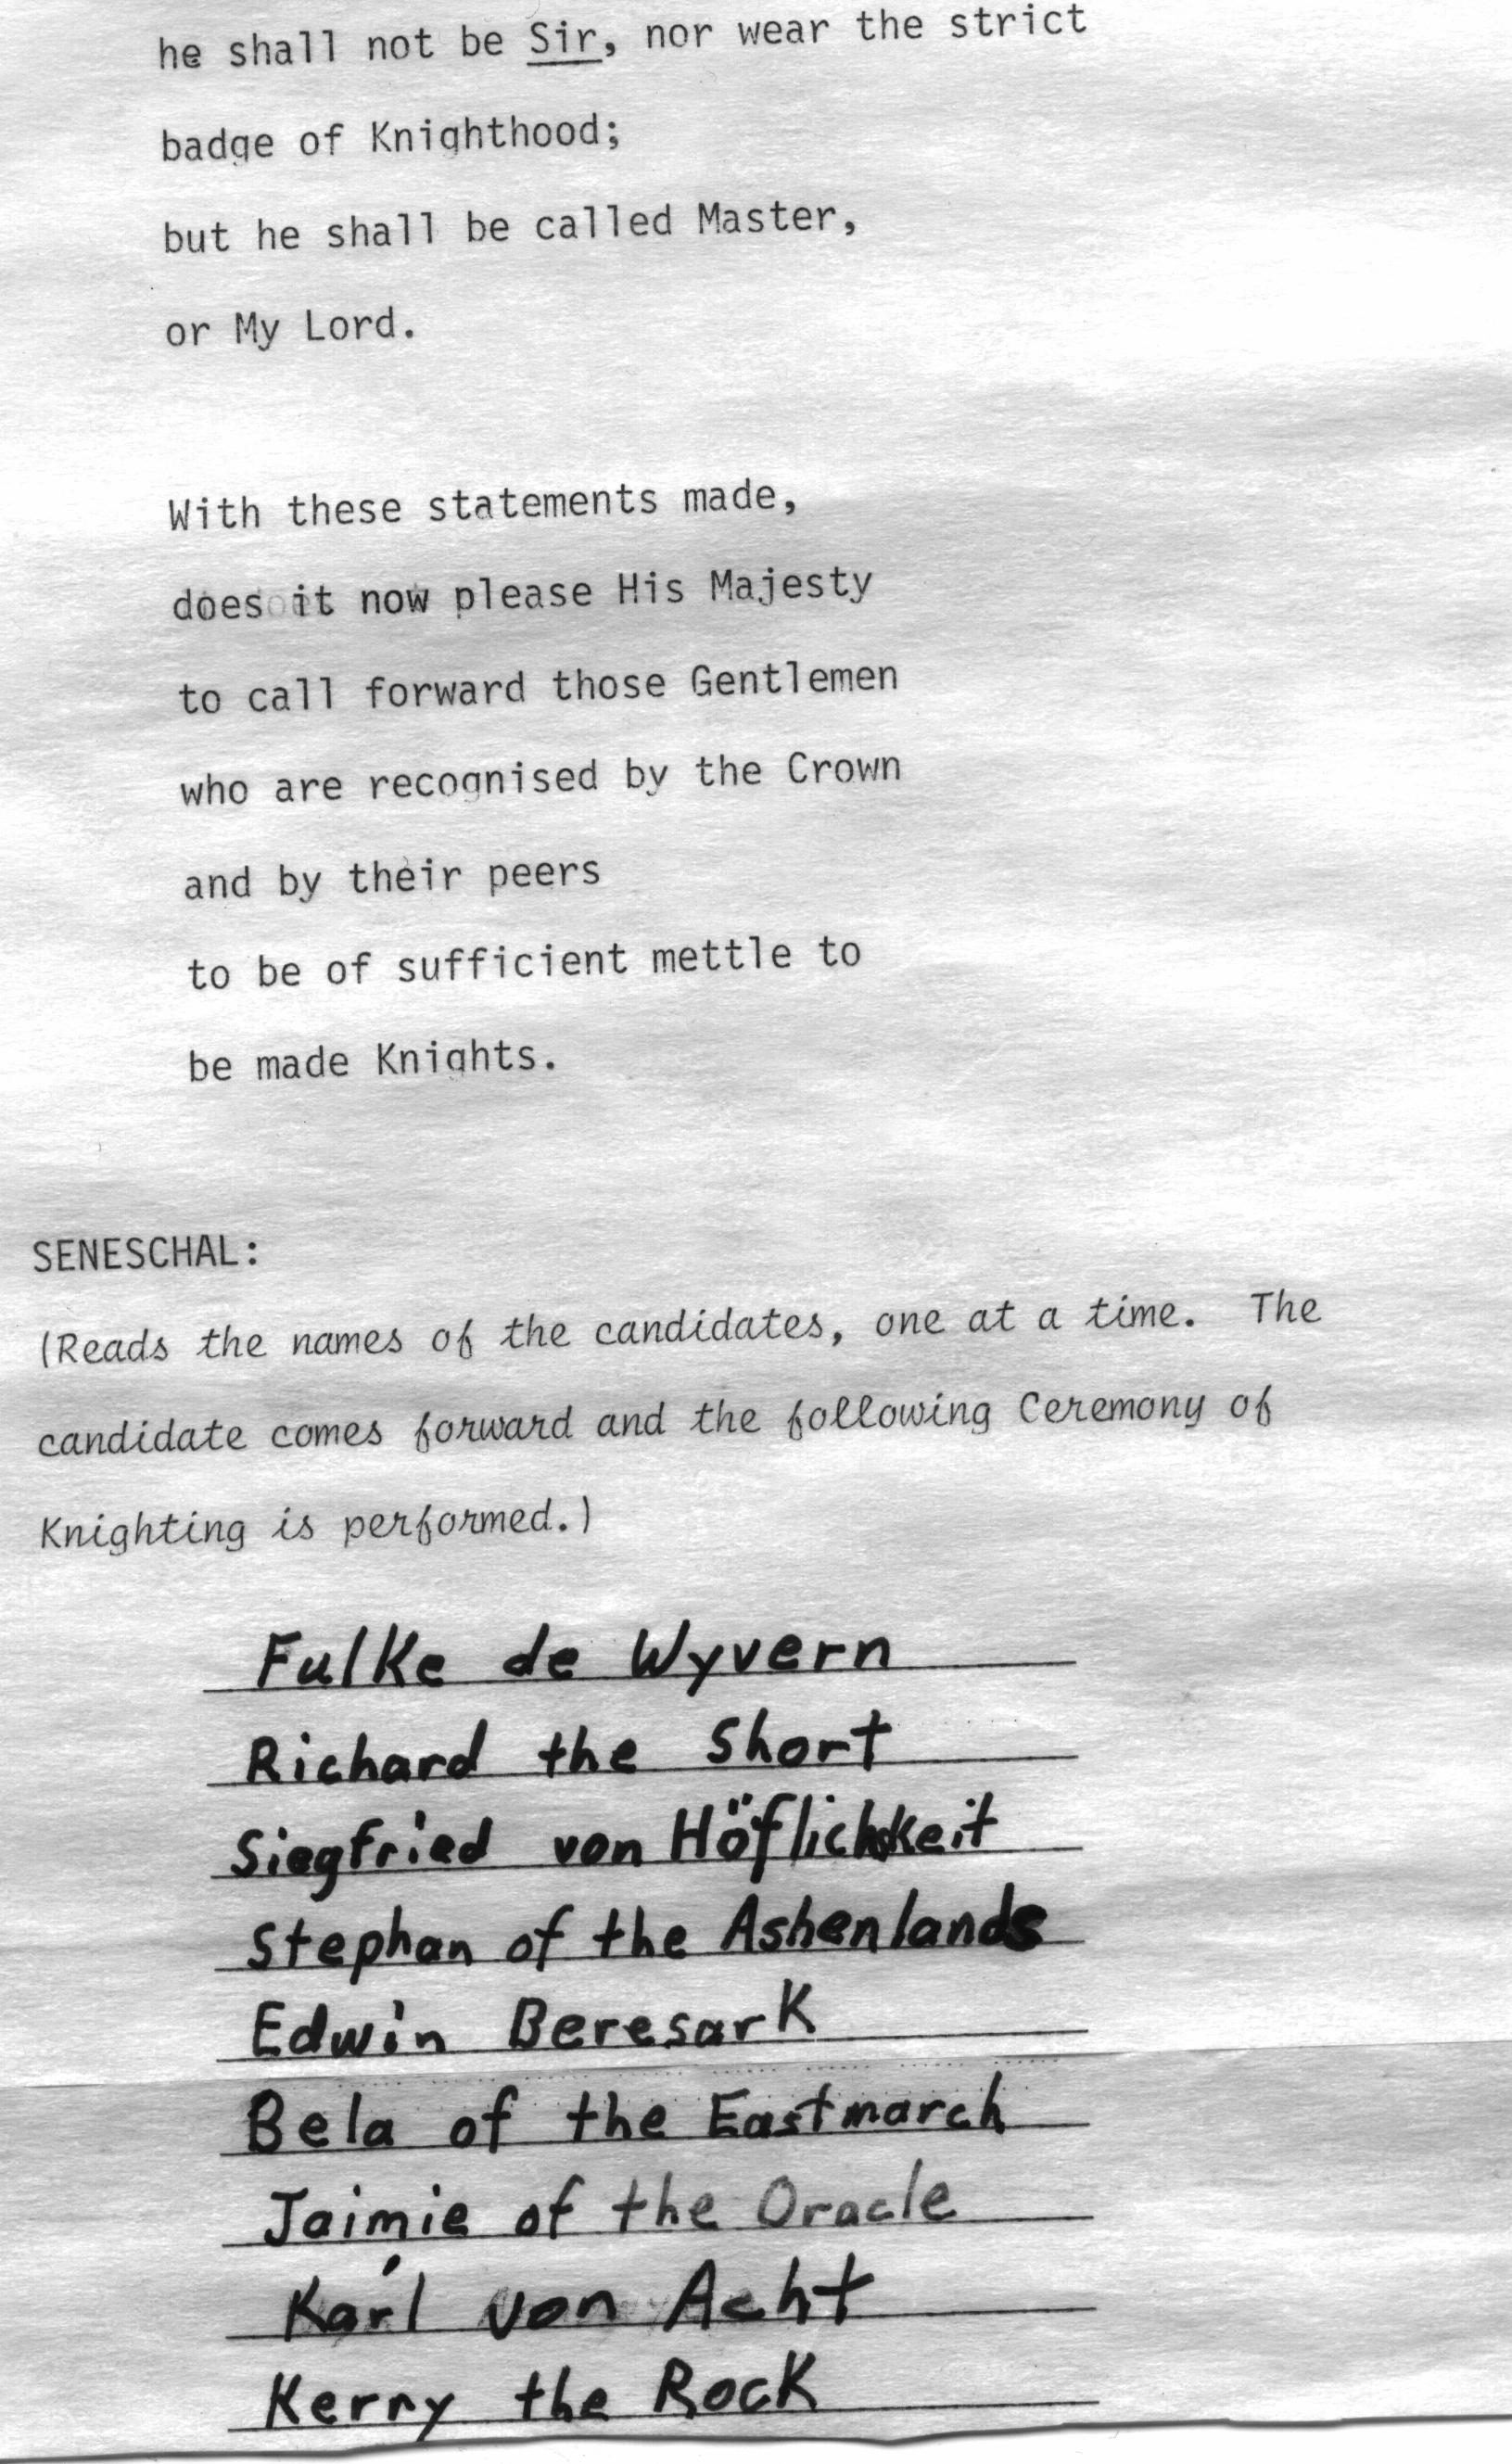 he shall not be Sir, nor wear the strict
badge of Knighthood;
but he shall be called Master,
or My Lord.
With these statements made,
does it now please His Majesty
to call forward those Gentlemen
who are recognised by the Crown
and by their peers
to be of sufficient mettle to
be made Knights.
SENESCHAL:
(Reads the names of the candidates, one at a time. The
candidate comes forward and the following Ceremony of
Knighting is performed.)
Fulke de Wyvern
Richard the Short
Siegfried von Höflichkeit
Stephan of the Ashenlands
Edwin Beresark
Bela of the Eastmarch
Jaimie of the Oracle
Karl von Acht
Kerry the Rock